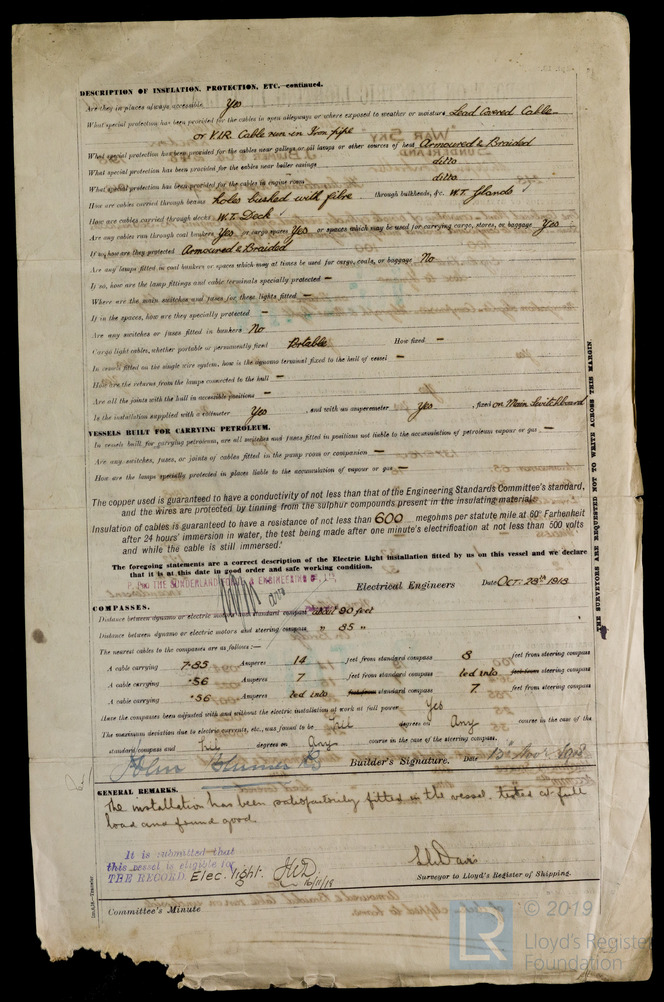 DESCRIPTION OF INSULATION, PROTECTION, ETC.—continued.
Are they in places always accessible Yes
What special protection has been provided for the cables in open alleyways or where exposed to weather or moisture Lead Covered Cable
or V.I.R. Cable run in Iron pipe
What special protection has been provided for the cables near galleys or oil lamps or other sources of heat Armoured & Braided
What special protection has been provided for the cables near boiler casings ditto
What special protection has been provided for the cables in engine room ditto
How are cables carried through beams holes bushed with fibre through bulkheads, &c. W.T. Glands
How are cables carried through decks W.T. Deck
Are any cables run through coal bunkers Yes or cargo spaces Yes or spaces which may be used for carrying cargo, stores, or baggage Yes
If so, how are they protected Armoured & Braided
Are any lamps fitted in coal bunkers or spaces which may at times be used for cargo, coals, or baggage No
If so, how are the lamp fittings and cable terminals specially protected —
Where are the main switches and fuses for these lights fitted —
If in the spaces, how are they specially protected —
Are any switches or fuses fitted in bunkers No
Cargo light cables, whether portable or permanently fixed Portable How fixed —
In vessels fitted on the single wire system, how is the dynamo terminal fixed to the hull of vessel —
How are the returns from the lamps connected to the hull —
Are all the joints with the hull in accessible positions —
Is the installation supplied with a voltmeter Yes, and with an amperemeter Yes, fixed on Main Switchboard
VESSELS BUILT FOR CARRYING PETROLEUM.
In vessels built for carrying petroleum, are all switches and fuses fitted in positions not liable to the accumulation of petroleum vapour or gas —
Are any switches, fuses, or joints of cables fitted in the pump room or companion —
How are the lamps specially protected in places liable to the accumulation of vapour or gas —
The copper used is guaranteed to have a conductivity of not less than that of the Engineering Standards Committee's standard,
and the wires are protected by tinning from the sulphur compounds present in the insulating material.
Insulation of cables is guaranteed to have a resistance of not less than 600 megohms per statute mile at 60° Farhenheit
after 24 hours' immersion in water, the test being made after one minute's electrification at not less than 500 volts
and while the cable is still immersed.
The foregoing statements are a correct description of the Electric Light installation fitted by us on this vessel and we declare
that it is at this date in good order and safe working condition.
THE SUNDERLAND FORGE & ENGINEERING
Electrical Engineers Date Oct. 28th 1918
COMPASSES.
Distance between dynamo or electric motors and standard compass about 90 feet
Distance between dynamo or electric motors and steering compass " 85 "
The nearest cables to the compasses are as follows:—
A cable carrying 7.85 Amperes 14 feet from standard compass 8 feet from steering compass
A cable carrying .56 Amperes 7 feet from standard compass led into feet from steering compass
A cable carrying .56 Amperes led into feet from standard compass 7 feet from steering compass
Have the compasses been adjusted with and without the electric installation at work at full power Yes
The maximum deviation due to electric currents, etc., was found to be Nil degrees on Any course in the case of the
standard compass and Nil degrees on Any course in the case of the steering compass.
John Blumer & Co Builder's Signature. Date 13th Nov. 1918
GENERAL REMARKS.
The installation has been satisfactorily fitted in the vessel. tested at full
load and found good.
It is submitted that
this vessel is eligible for
THE RECORD. Elec. light. 16/11/18
Surveyor to Lloyd's Register of Shipping.
Committee's Minute
THE SURVEYORS ARE REQUESTED NOT TO WRITE ACROSS THIS MARGIN.
© 2019
LR
Lloyd's Register
Foundation